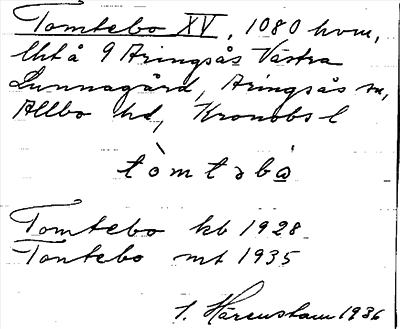 Tomtebo XV, 1080 kvm,
lht å 9 Aringsås Västra
Lunnagård, Aringsås sn,
Allbo hd, Kronobs l
tòmtəbò̤
Tomtebo kb 1928
Tomtebo mt 1935
I. Härenstam 1936